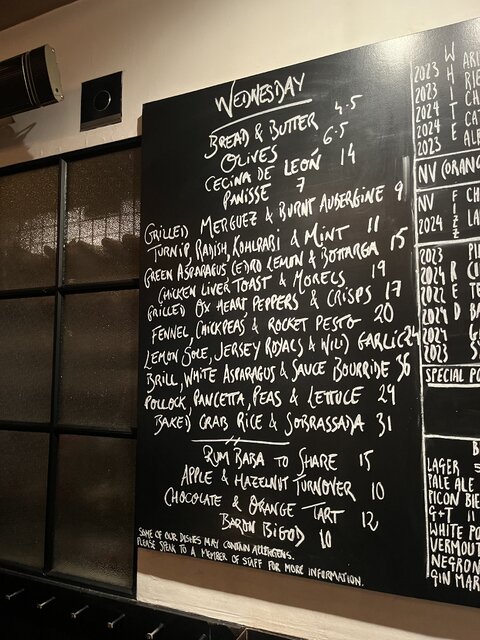 WEDNESDAY
BREAD & BUTTER 4.5
OLIVES 6.5
CECINA DE LEÓN 14
PANISSE 7
GRILLED MERGUEZ & BURNT AUBERGINE 9
TURNIP, RADISH, KOHLRABI & MINT 11
GREEN ASPARAGUS CEDRO LEMON & BOTTARGA 15
CHICKEN LIVER TOAST & MORELS 19
GRILLED OX HEART PEPPERS & CRISPS 17
FENNEL, CHICKPEAS & ROCKET PESTO 20
LEMON SOLE, JERSEY ROYALS & WILD GARLIC 24
BRILL, WHITE ASPARAGUS & SAUCE BOURRIDE 36
POLLOCK, PANCETTA, PEAS & LETTUCE 29
BAKED CRAB RICE & SOBRASSADA 31
RUM BABA TO SHARE 15
APPLE & HAZELNUT TURNOVER 10
CHOCOLATE & ORANGE TART 12
BARON BIGOD 10
SOME OF OUR DISHES MAY CONTAIN ALLERGENS.
PLEASE SPEAK TO A MEMBER OF STAFF FOR MORE INFORMATION.
WHITE
2023 ARI
2023 RIE
2024 CH
2024 CA
2023 ALB
NV (ORANG
FIZZ
NV CH
2024 LA
RED
2023 PI
2024 CI
2022 TE
2024 BA
2024 G
2023 S
SPECIAL PO
B
LAGER
PALE ALE
PICON BIE
G+T 11
WHITE PO
VERMOUT
NEGRON
GIN MAR